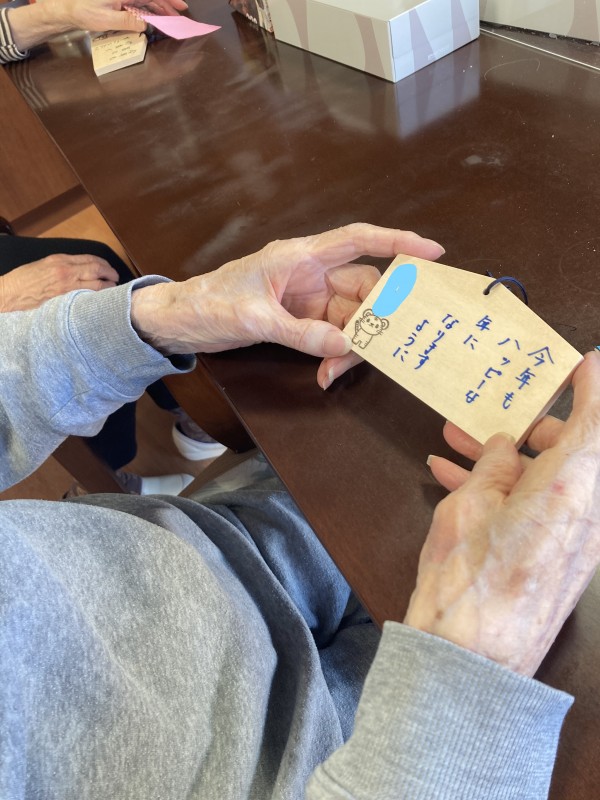 今年も
ハッピーな
年に
なります
ように